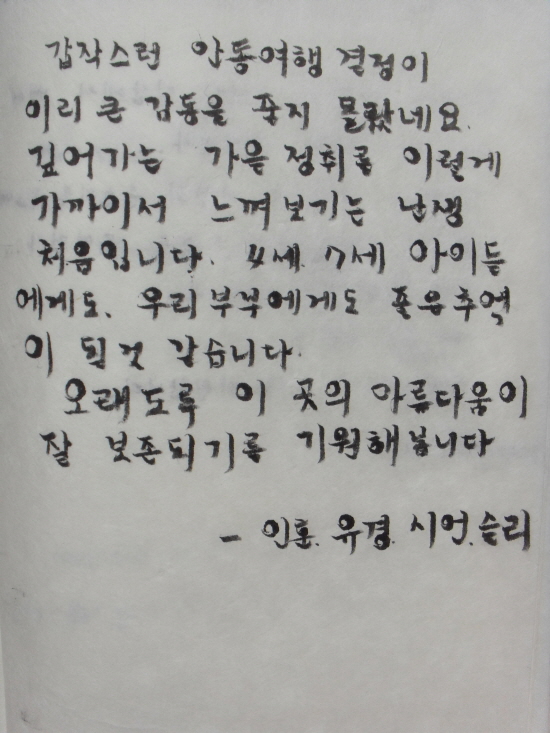 갑작스런 안동여행 결정이
이리 큰 감동을 줄지 몰랐네요.
깊어가는 가을 정취를 이렇게
가까이서 느껴보기는 난생
처음입니다. 4세. 7세 아이들
에게도. 우리부부에게도 좋은추억
이 될것 같습니다.
오래도록 이 곳의 아름다움이
잘 보존되기를 기원해봅니다
- 인훈. 유경. 시언. 슬리